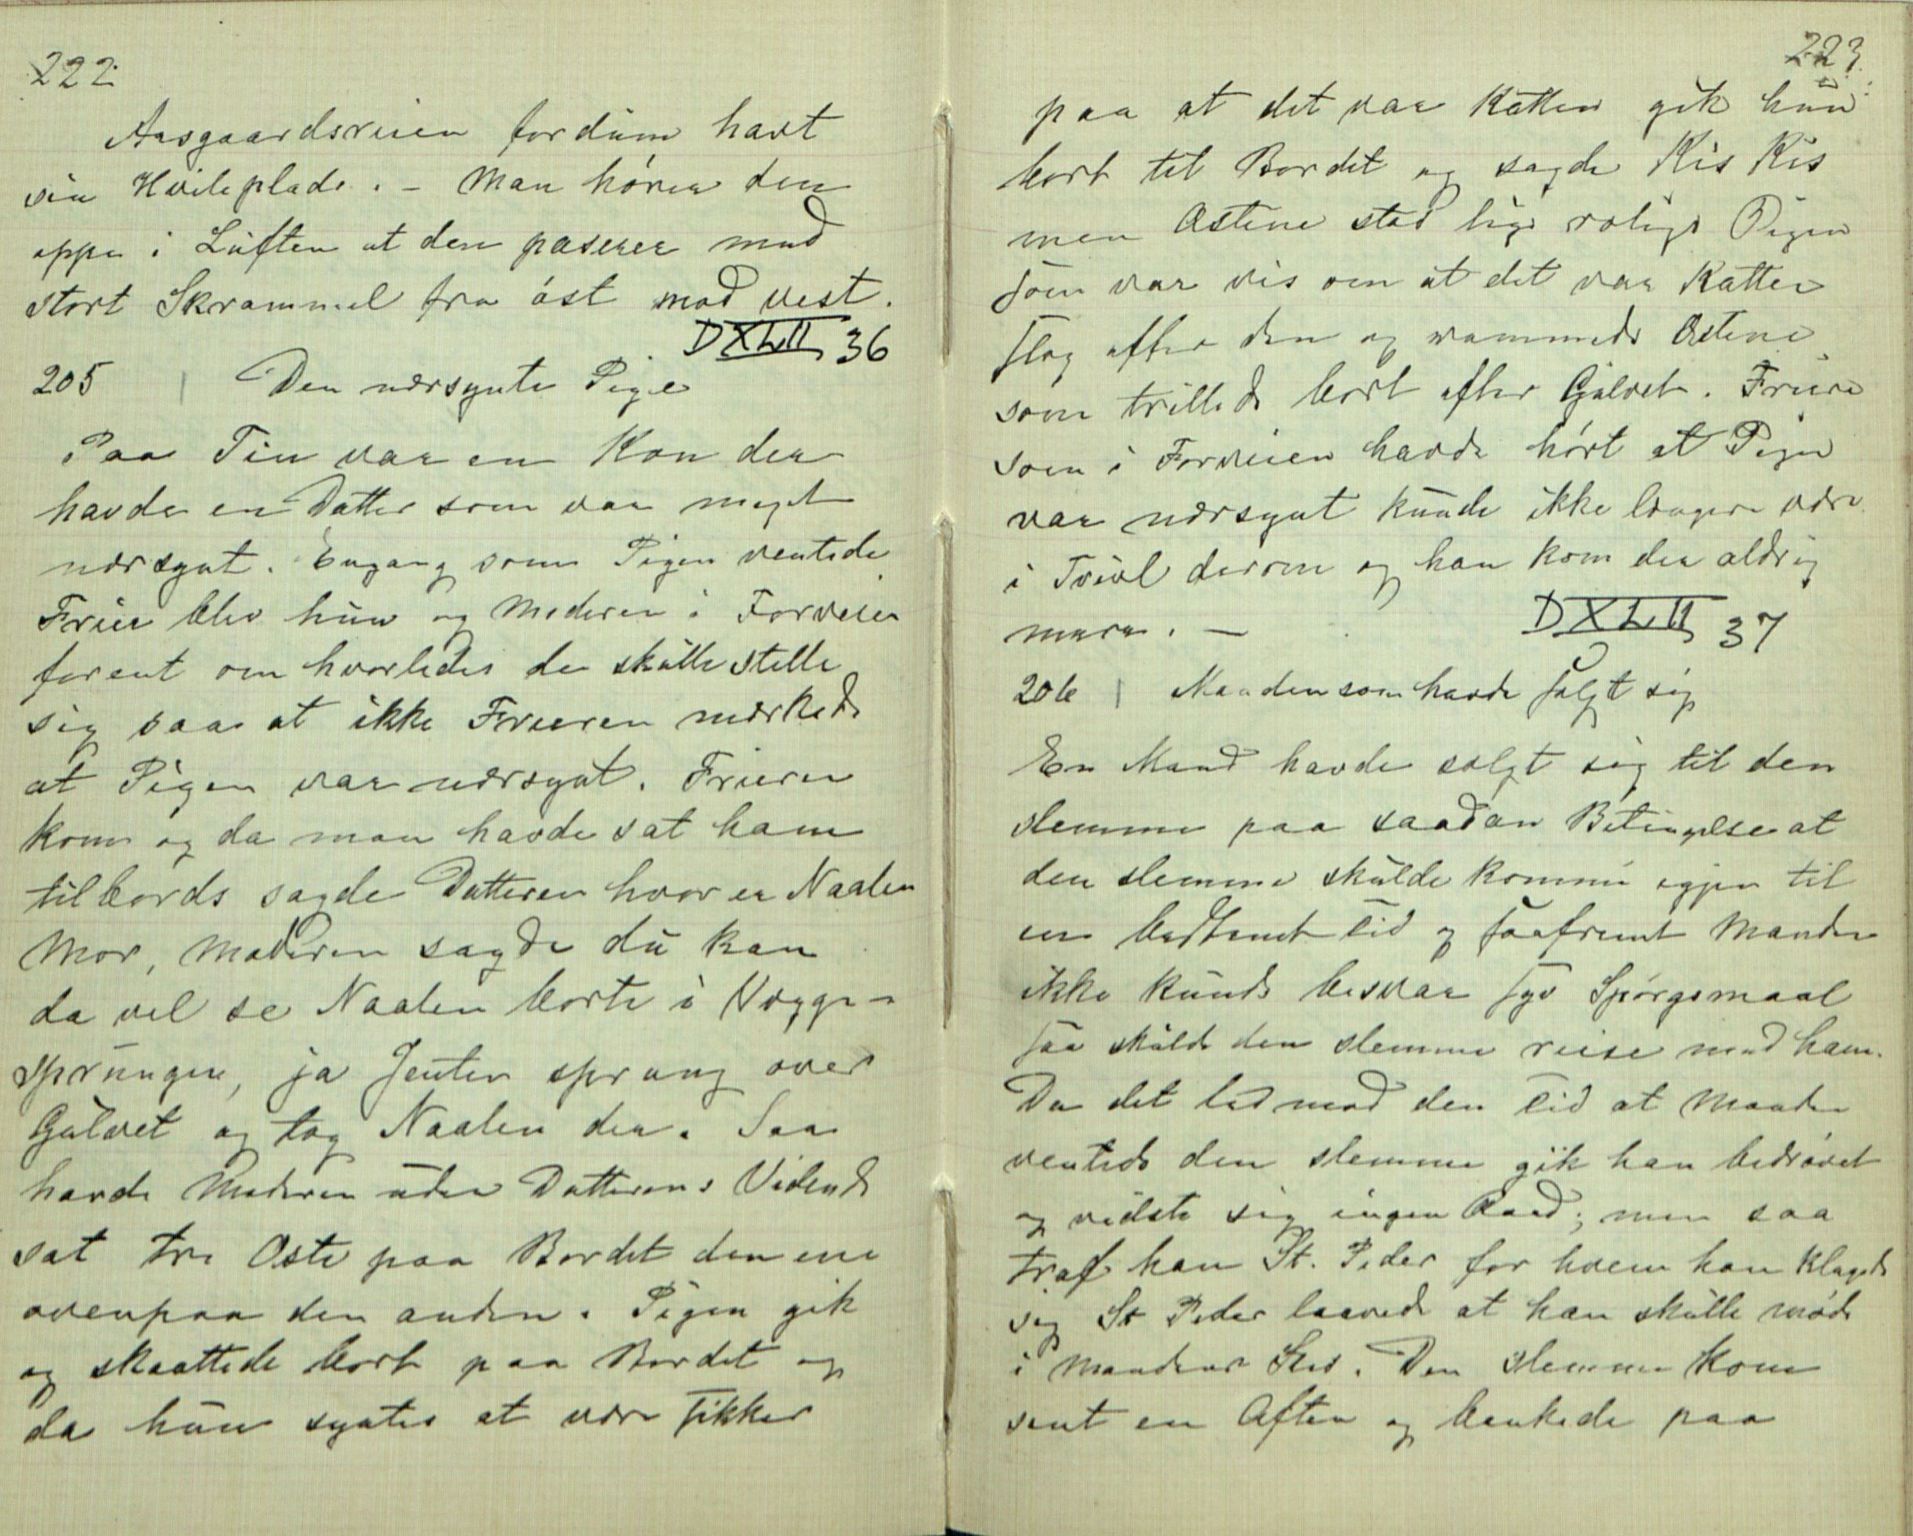 222
Aasgaardsreien fordum havt
sin Hvileplads. - Man hører den
oppe i Luften at den paserer med
stort Skrammel fra øst mod vest.
DXLII 36
205 | Den nærsynte Pige
Paa Tin var en Kone der
havde en Datter som var meget
nærsynt. Engang som Pigen ventede
Frier blev hun og Moderen i Forveien
forent om hvorledes de skulle stelle
sig saa at ikke Frieren mærkede
at Pigen var nærsynt. Frieren
kom og da man havde sat ham
tilbords sagde Datteren hvor er Naalen
Mor, Moderen sagde du kan
da vel se Naalen borte i Vægge-
sprungen, ja Jenten sprang over
Gulvet og tog Naalen der. Saa
havde Moderen uden Datterens Vidende
sat tre Oste paa Bordet den ene
ovenpaa den anden. Pigen gik
og skaattede bort paa Bordet og
da hun syntes at være sikker
223
paa at det var Katten gik hun
bort til Bordet og sagde Kis Kis
men Ostene stod lige rolige Pigen
som var vis om at det var Katten
slog efter den og rammede Ostene
som trillede bort efter Gulvet. Frieren
som i Forveien havde hørt at Pigen
var nærsynt kunde ikke længere være
i Tvivl derom og han kom der aldrig
mere. -
DXLII 37
206 | Manden som havde solgt sig
En Mand havde solgt sig til den
slemme paa saadan Betingelse at
den slemme skulde komme igjen til
en bestemt Tid og saafremt Manden
ikke kunde besvar syv Spørgsmaal
saa skulde den slemme reise med ham.
Da det led mod den Tid at Manden
ventede den slemme gik han bedrøvet
og vidste sig ingen Raad; men saa
traf han St. Peder for hvem han klagede
sig St Peder lovede at han skulle møde
i Mandens Sted. Den slemme kom
sent en Aften og bankede paa